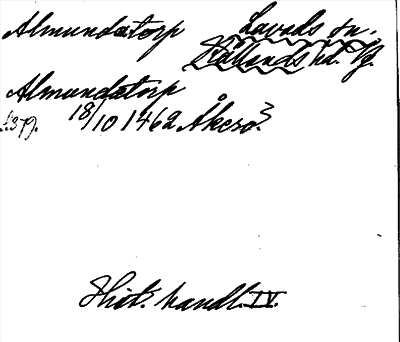 Almundatorp Lavads sn.
Kållands hd. Vg.
Almundatorp
18/10 1462 Åkerö?
Hist. handl. IV.